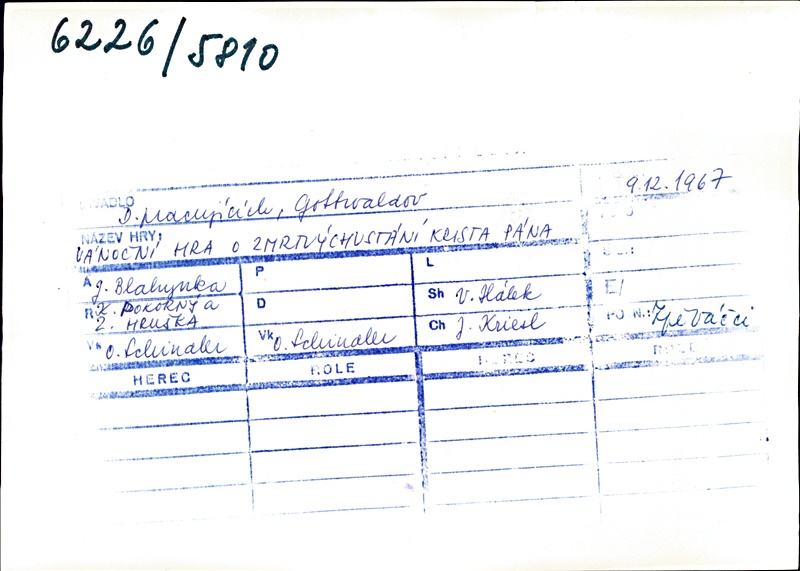 6226/5810
DIVADLO D. pracujících, Gottwaldov 9.12.1967
NÁZEV HRY:
VÁNOČNÍ HRA O ZMRTVÝCHVSTÁNÍ KRISTA PÁNA
A J. Blahynka P L
R Z. POKORNÝ a Z. HRUŠKA D Sh V. Hálek
Vk O. Schindler Vk O. Schindler Ch J. Kriesl
E/
PO N.: Zpěváčci
HEREC ROLE HEREC ROLE